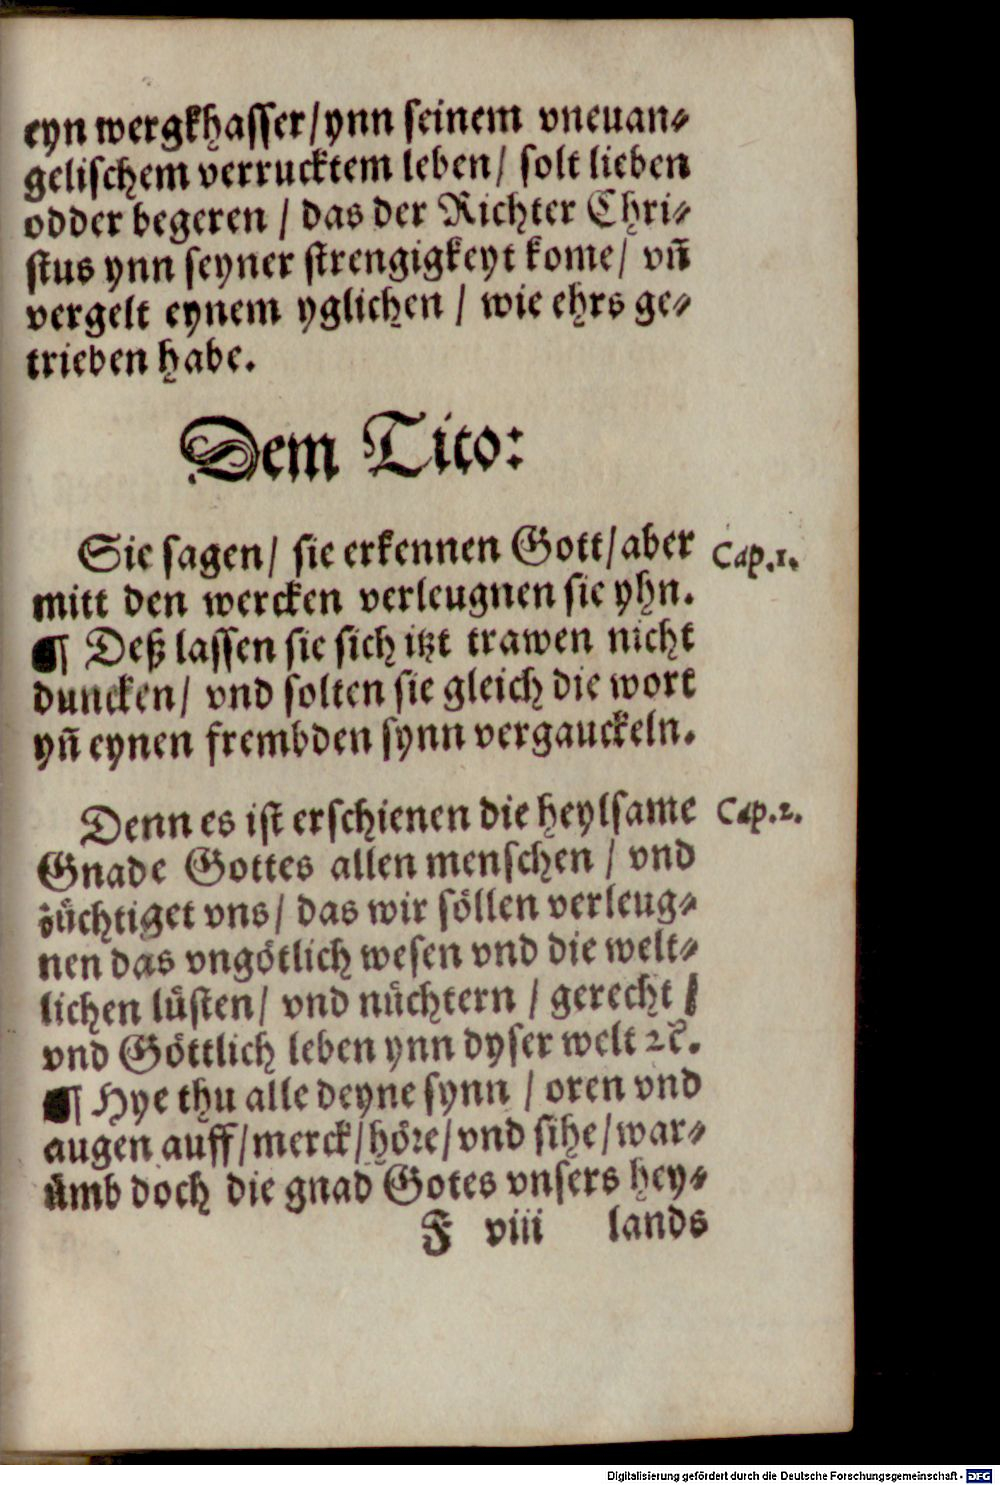 eyn wergkhasser/ynn seinem vneuan⸗
gelischem verrucktem leben/ solt lieben
odder begeren / das der Richter Chri⸗
stus ynn seyner strengigkeyt kome/ vñ
vergelt eynem yglichen / wie ehrs ge⸗
trieben habe.
Dem Tito:
Sie sagen/ sie erkennen Gott/aber
Cap.1.
mitt den wercken verleugnen sie yhn.
¶ Deß lassen sie sich itzt trawen nicht
duncken/ vnd solten sie gleich die wort
yñ eynen frembden synn vergauckeln.
Denn es ist erschienen die heylsame
Cap.2.
Gnade Gottes allen menschen / vnd
züchtiget vns/ das wir söllen verleug⸗
nen das vngötlich wesen vnd die welt⸗
lichen lüsten/ vnd nüchtern / gerecht /
vnd Göttlich leben ynn dyser welt ꝛc̃.
¶ Hye thu alle deyne synn / oren vnd
augen auff/merck/höꝛe/vnd sihe/war⸗
ümb doch die gnad Gotes vnsers hey⸗
F viii lands
Digitalisierung gefördert durch die Deutsche Forschungsgemeinschaft - DFG